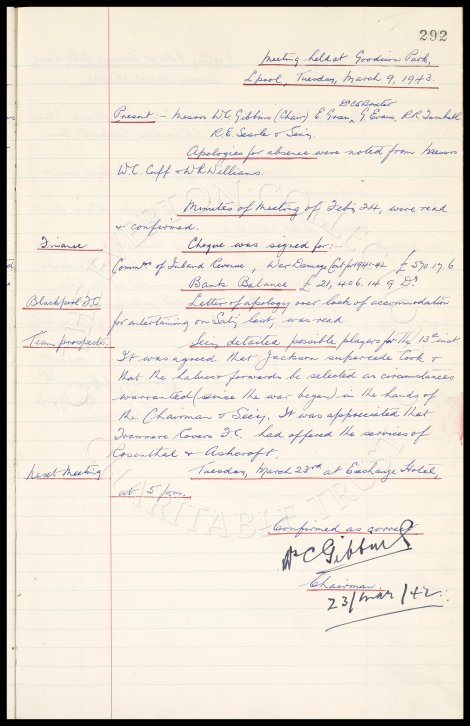 292
Meeting held at Goodison Park,
L'pool, Tuesday, March 9, 1943.
Dr. C.S. Baxter
Present:- Messrs W.C. Gibbins (Chair) E. Green, G. Evans, R.R. Turnbull
R.E. Searle & Secy.
Apologies for absence were noted from Messrs
W.C. Cuff & W.R. Williams.
Minutes of Meeting of Feb'y 24, were read
& confirmed.
Finance
Cheque was signed for:
Commrs of Inland Revenue, War Damage 1941-42 £ 570.17.6
Bank Balance £ 21,406.14.9 Dr.
Blackpool F.C.
Letter of apology over lack of accommodation
for entertaining on Sat'y last, was read.
Team prospects.
Secy detailed possible players for the 13th inst.
It was agreed that Jackson supercede Cook &
that the halves & forwards be selected as circumstances
warranted (since the war began) in the hands of
the Chairman & Secy. It was appreciated that
Tranmere Rovers F.C. had offered the services of
Rosenthal & Ashcroft.
Next Meeting
Tuesday, March 23rd at Exchange Hotel,
at 5 p.m.
Confirmed as correct
W C Gibbins
Chairman.
23/Mar/42.
EVERTON COLLECTION
CHARITABLE TRUST